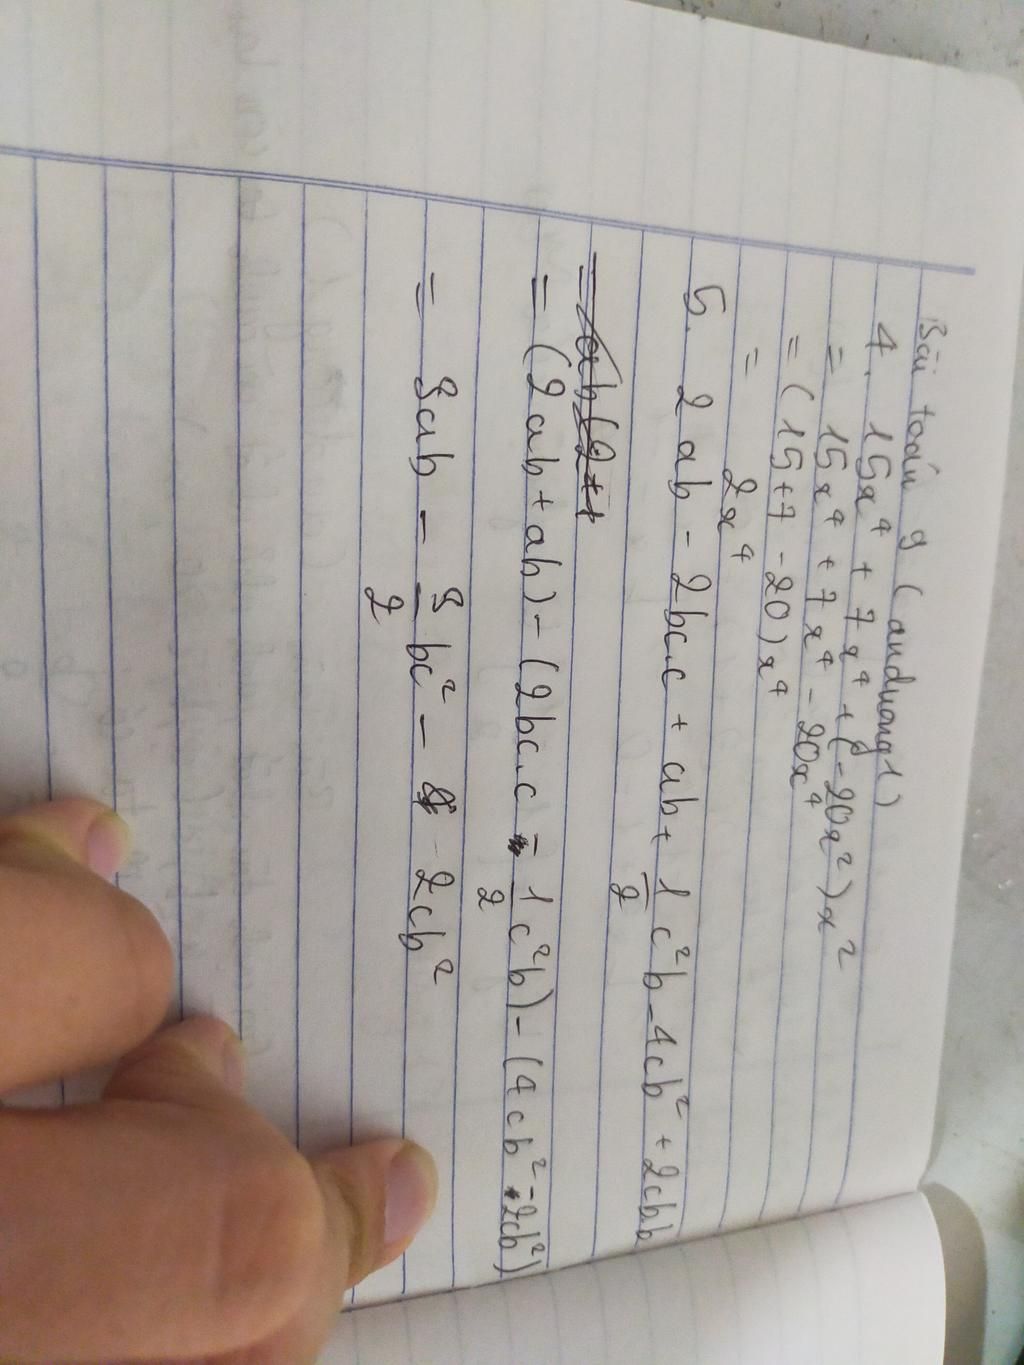 Bài toán 9 (anduong1)
4. 15x⁴ + 7x⁴ + (-20x²)x²
= 15x⁴ + 7x⁴ - 20x⁴
= (15+7 - 20)x⁴
= 2x⁴
5. 2ab - 2bc.c + ab + 1/2 c²b - 4cb² + 2cbb
= ab(2+1
= (2ab + ab) - (2bc.c - 1/2 c²b) - (4cb² - 2cb²)
= 3ab - 3/2 bc² - 2cb²